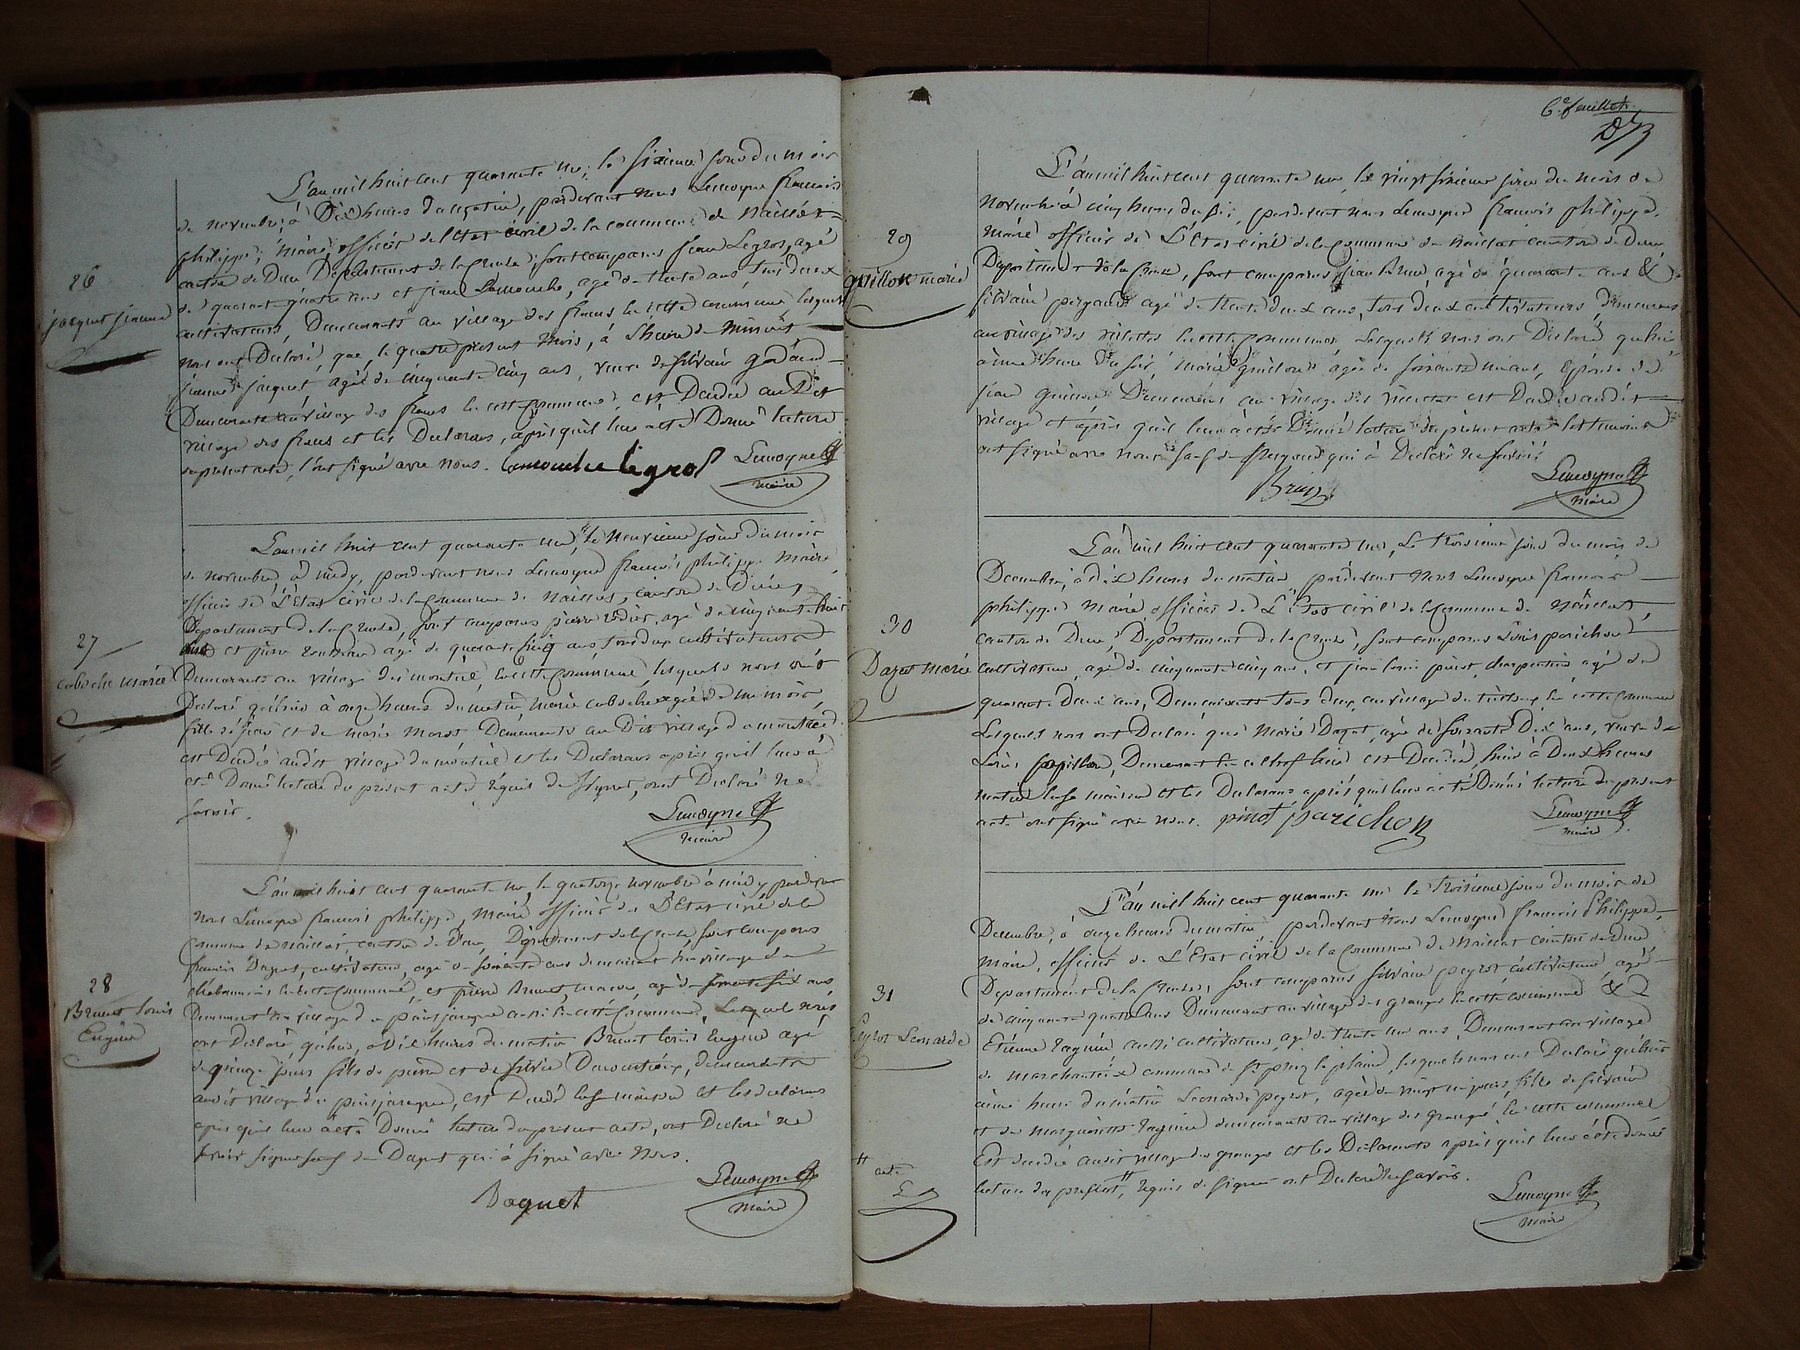 26
jacquet jeanne
L'an mil huit cent quarante un, le sixieme jour du mois
de novembre, à Dix heures du matin, pardevant nous Lemoyne françois
philippe, maire, officier de l'Etat civil de la commune de Naillat
canton de Dun, Département de la Creuse, sont comparus jean Legros, agé
de quarante quatre ans et jean Lamouche, agé de trente ans tous deux
cultivateurs, Demeurants au village des fraus en cette commune lesquels
nous ont Declaré, que, le quatre present mois, à l'heure de minuit
jeanne jacquet, agée de cinquante cinq ans, veuve de silvain
Demeurante au village des fraus en cette Commune, est Decedée au Dit
village des fraus et les Declarans, après qu'il leur a été Donné lecture
du present acte, l'ont signé avec nous. Lamouche legros Lemoyne
maire
27
caboche marie
L'an mil huit cent quarante un, le neuvieme jour du mois
de novembre, à midy, pardevant nous Lemoyne françois philippe maire
officier de L'Etat civil de la Commune de Naillat, canton de Dun,
Département de la Creuse, sont comparus pierre agé de cinquante huit
ans et pierre agé de quarante cinq ans tous deux cultivateurs
Demeurants au village du en cette Commune lesquels nous ont
Declaré qu'hier à onze heures du matin, Marie caboche agée de un mois
fille de jean et de marie Demeurants au Dit village du
est Decedée audit village du et les Declarans après qu'il leur a
été Donné lecture du present acte, Requis de signer, ont Declaré ne
savoir.
Lemoyne
maire
28
Brunet Louis
Eugene
L'an mil huit cent quarante un, le quatorze novembre à midy pardevant
nous Lemoyne françois philippe, maire officier de L'Etat civil de la
Commune de Naillat, canton de Dun, Département de la Creuse, sont comparus
francois Daquet, cultivateur, agé de soixante ans demeurant au village de
en cette Commune, et pierre Brunet, macon, agé de ans,
Demeurant au village de puisjaregne aussi en cette Commune, Lesquels nous
ont Declaré qu'hier, à Dix heures du matin Brunet Louis Eugene agé
de quinze jours fils de pierre et de silvie demeurants
audit village de puisjaregne, est Decedé en sa maison et les declarans
apres qu'il leur a été Donné lecture du present acte, ont Declaré ne
savoir signer sauf de Daquet qui à signé avec nous.
Daquet
Lemoyne
maire
6e feuillet
29
guillon marie
L'an mil huit cent quarante un, le vingt sixieme jour du mois de
Novembre à cinq heures du soir, pardevant nous Lemoyne françois philippe,
maire officier de L'Etat civil de la Commune de Naillat canton de Dun
Département de la Creuse, sont comparus jean Brun, agé de quarante ans &
silvain agé de trente deux ans, tous deux cultivateurs, Demeurans
au village des en cette Commune, Lesquels nous ont Declaré qu'hier
à une heure du soir, Marie guillon agée de soixante un ans, Epouse de
jean Demeurant au village des est Decedée audit
village et après qu'il leur a été Donné lecture du present acte les temoins
ont signé avec nous sauf de qui à Declaré ne savoir.
Brun
Lemoyne
Maire
30
Daquet Marie
L'an mil huit cent quarante un, Le troisieme jour du mois de
Decembre, à dix heures du matin, pardevant nous Lemoyne francois
philippe maire officier de L'Etat civil de la Commune de Naillat,
canton de Dun, Département de la Creuse, sont comparus Louis parichon
cultivateur, agé de cinquante cinq ans, et jean Louis pinot, charpentier agé de
quarante Deux ans, Demeurants tous deux au village de en cette Commune
Lesquels nous ont Declaré que Marie Daquet, agée de soixante Dix ans, veuve de
Louis papillon, Demeurant en est Decedée, hier à Deux heures
matin en sa maison et les Declarans après qu'il leur a été Donné lecture du present
acte ont signé avec nous. pinot parichon Lemoyne
maire
31
peyrot Leonarde
L'an mil huit cent quarante un le troisieme jour du mois de
Decembre, à onze heures du matin, pardevant nous Lemoyne francois Philippe,
maire, officier de L'Etat civil de la Commune de Naillat canton de Dun
Département de la Creuse, sont comparus silvain peyrot cultivateur agé
de cinquante quatre ans Demeurant au village des granges en cette commune &
Etienne aussi cultivateur, agé de trente un ans Demeurant au village
de commune de St priez la plaine, lesquels nous ont Declaré qu'hier
à une heure du matin Leonarde peyrot, agée de vingt un jours, fille de silvain
et de marguerite demeurants au village des granges en cette commune
Est decedée audit village des granges et les Declarants après qu'il leur a été donné
lecture du present //, Requis de signer ont Declaré ne savoir.
// acte
Lemoyne
maire